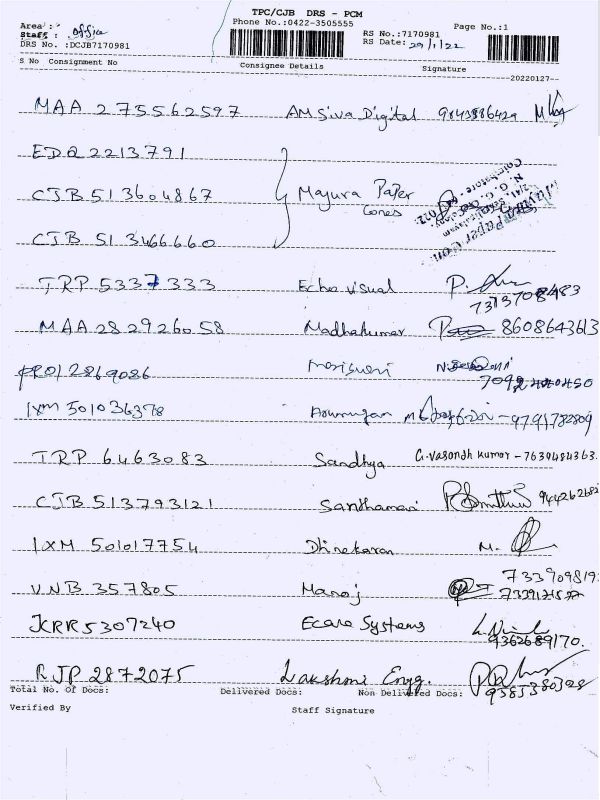 TPC/CJB DRS - PCM
Area : Phone No.:0422-3505555 Page No.:1
Staff : office RS No.:7170981
DRS No. :DCJB7170981 RS Date: 29/1/22
S No Consignment No Consignee Details Signature
20220127
MAA 275562597 AM Siva Digital 9843886429
EDQ2213791
CJB 513604867 Mayura Paper Cones
CJB 513466660
TRP 5337333 Echo visual 7373708483
MAA 282926058 Madhakumar 8608643613
2869086
IXM 501036378 Arumugam 9791782809
TRP 6463083 Sandhya G. Vasandh Kumar - 7639484363
CJB 513793121 Santhamani
IXM 501017754 Dhinekaran M.
VNB 357805 Manoj
KRR5307240 Ecare Systems 9362689170
RJP 2872075 Lakshmi Engg. 9385380328
Total No. Of Docs: Delivered Docs: Non Delivered Docs:
Verified By Staff Signature